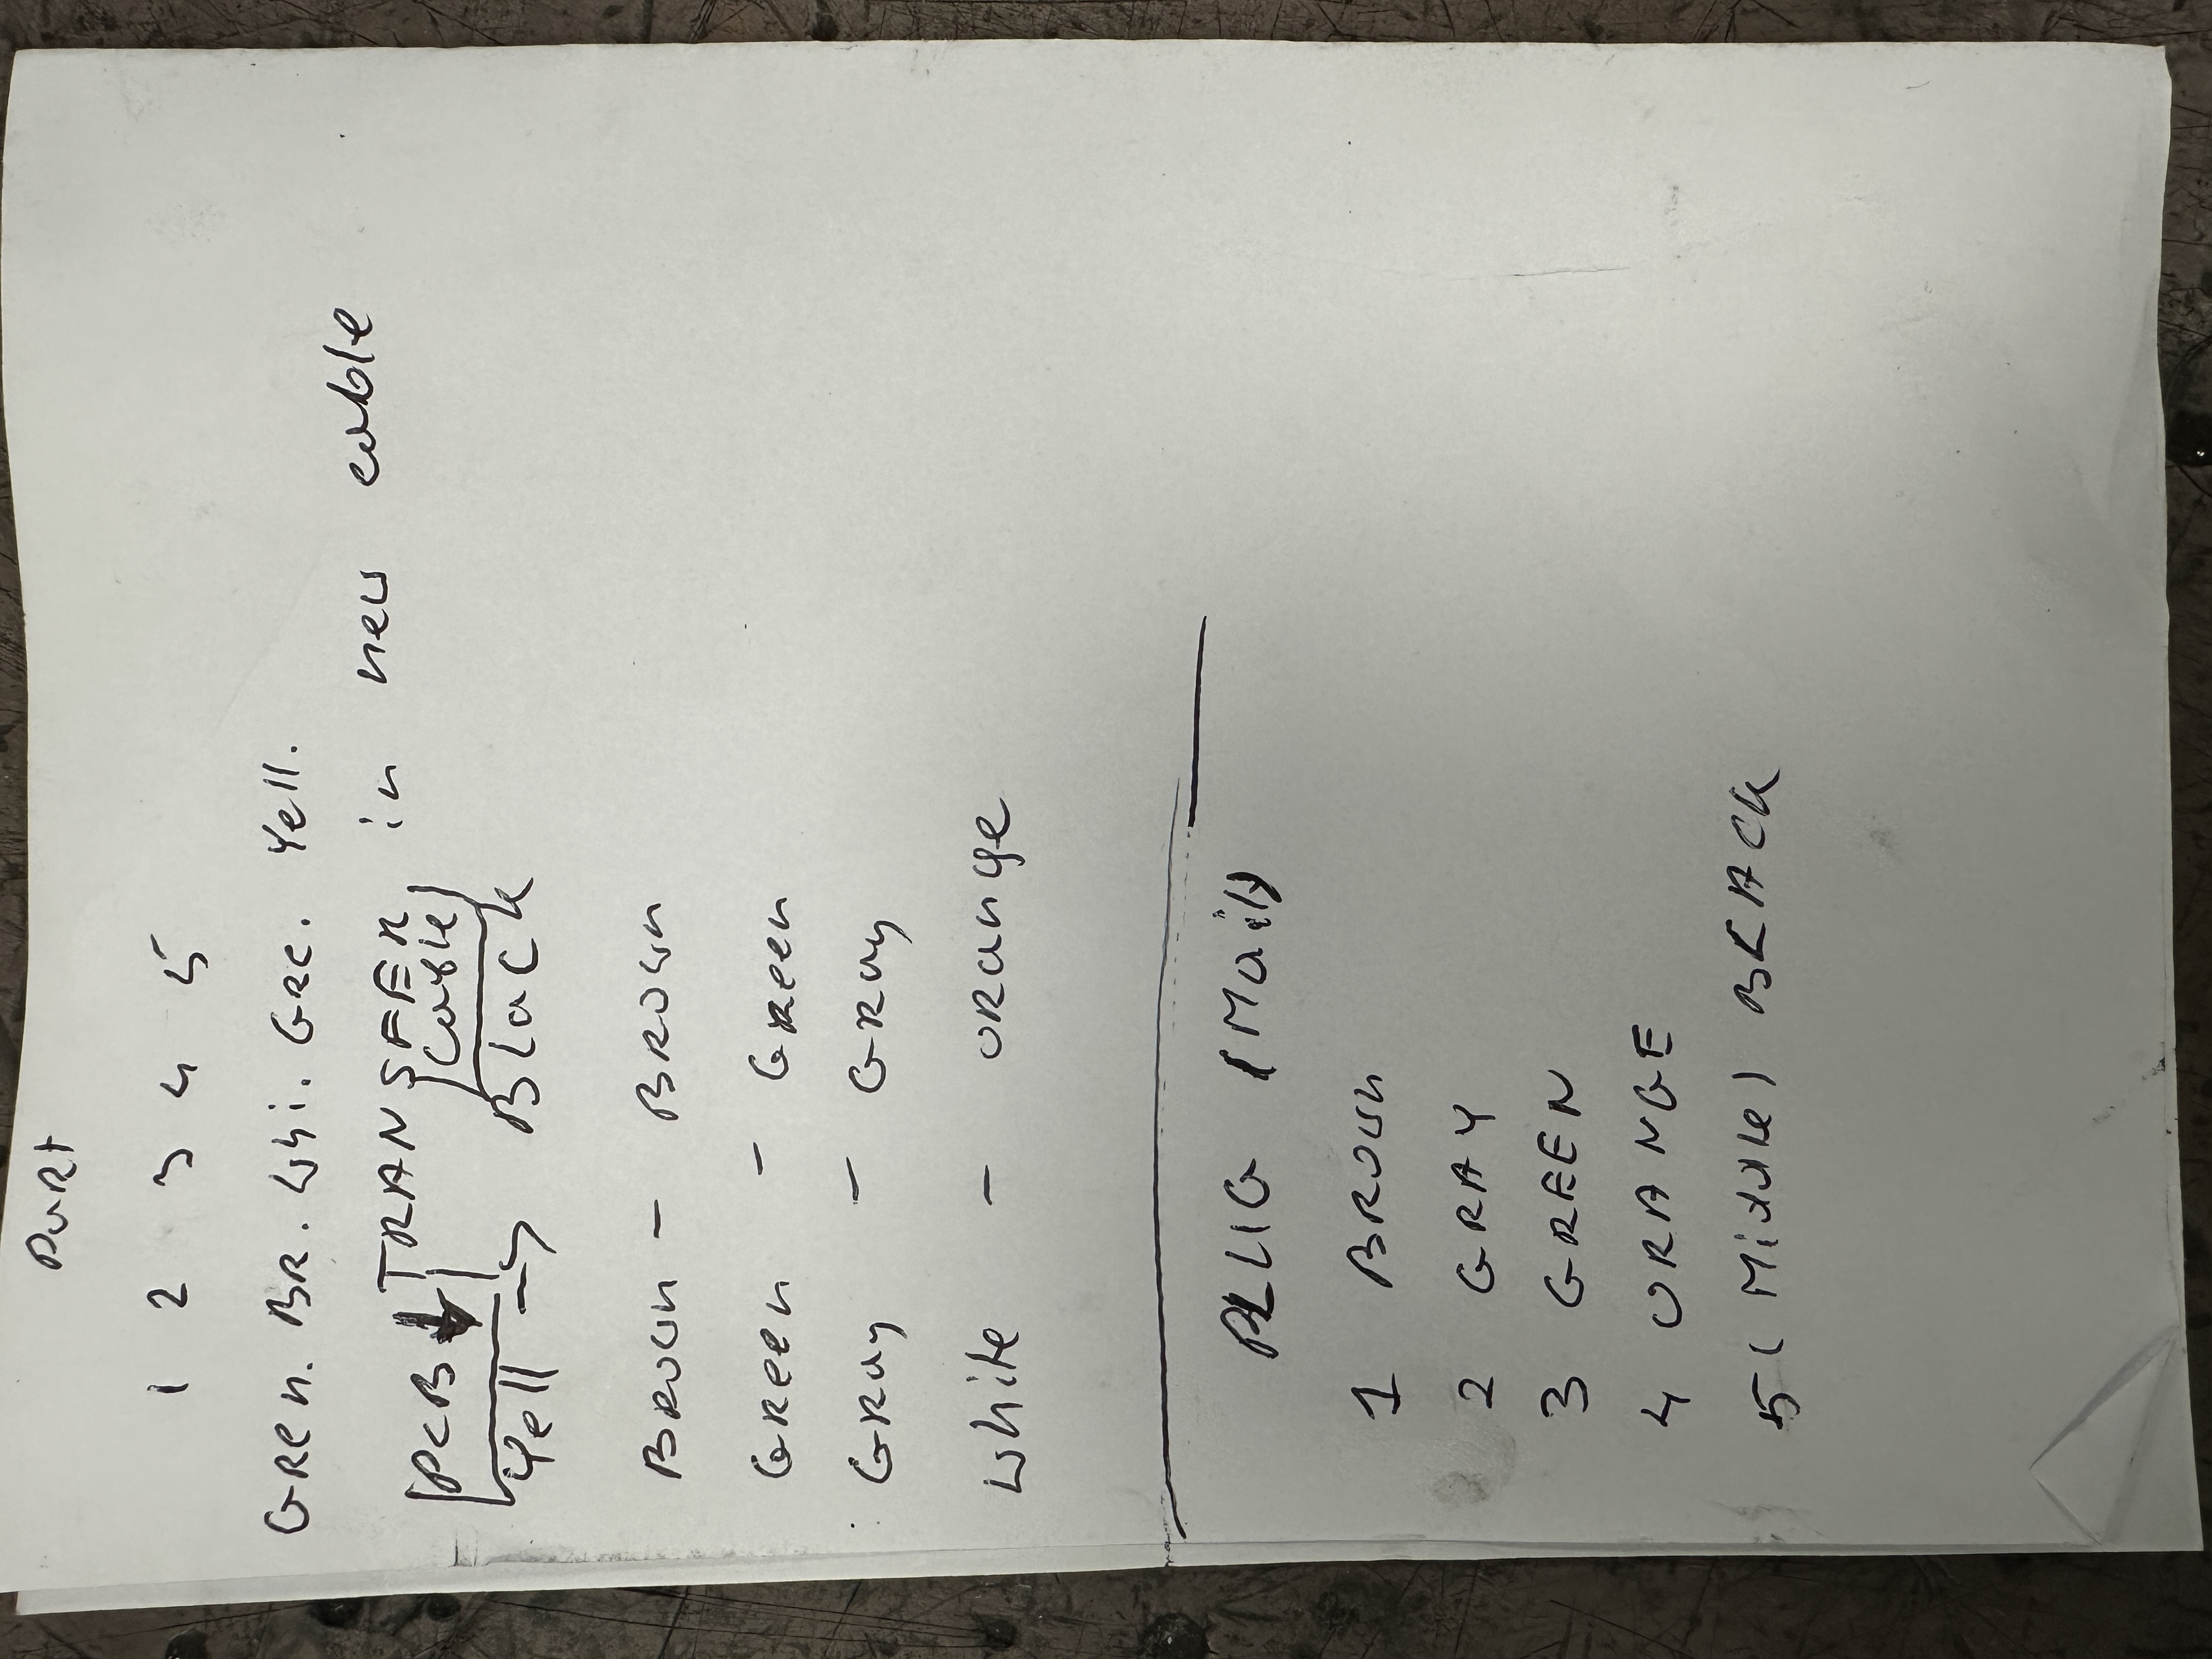 PORT
1 2 3 4 5
GRen. BR. Whi. GRE. Yell.
PCB TRANSFER in new cable
Cable
Yell --> Black
BROWN - BROWN
GReen - GReen
GRay - GRay
White - ORange
PLUG (Mail)
1 BROWN
2 GRAY
3 GREEN
4 ORANGE
5 (Middle) BLACK